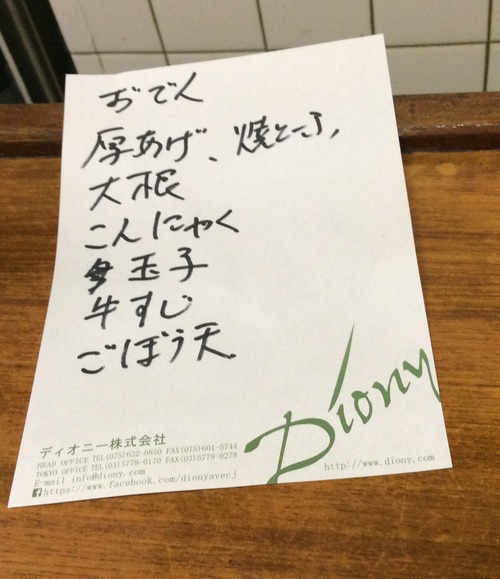 おでん
厚あげ、焼とーふ、
大根
こんにゃく
玉子
牛すじ
ごぼう天
Diony
ディオニー株式会社
HEAD OFFICE TEL(075)622-0850 FAX(075)601-5744
TOKYO OFFICE TEL(03)5778-0170 FAX(03)5778-0278
E-mail info@diony.com
https://www.facebook.com/dionyavecj
http://www.diony.com/